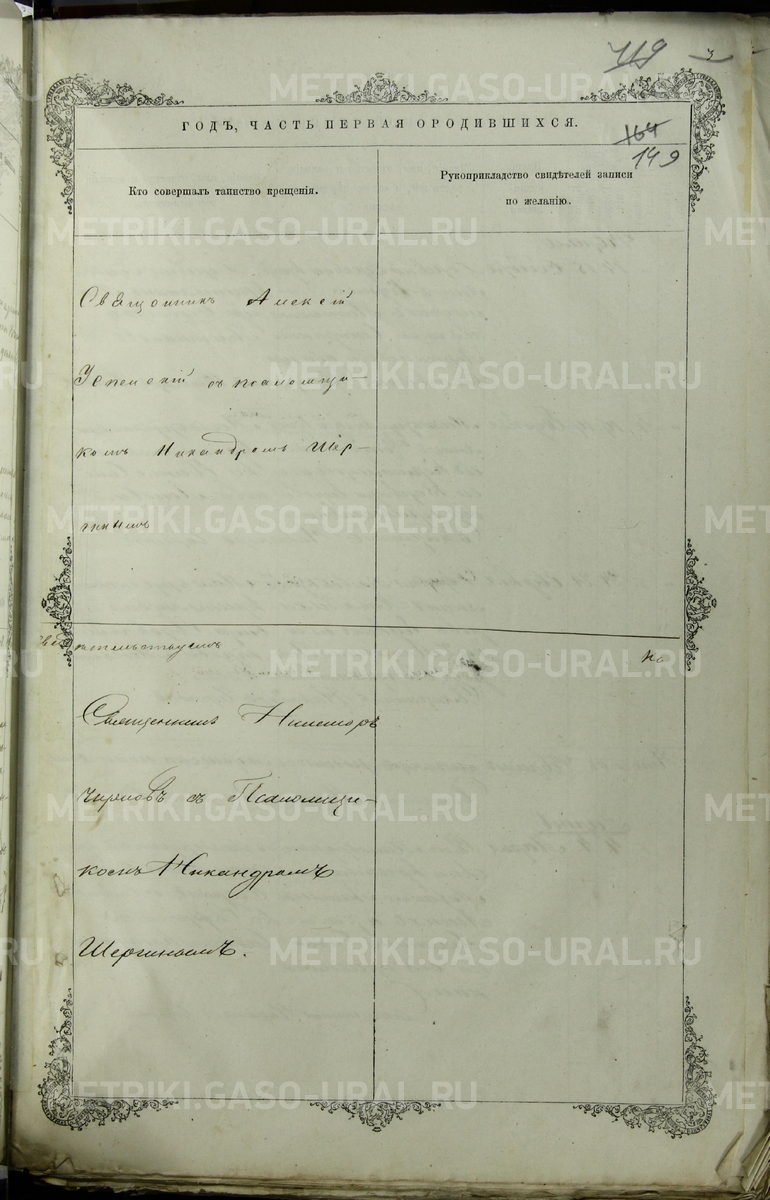 719
ГОДЪ, ЧАСТЬ ПЕРВАЯ О РОДИВШИХСЯ.
164
149
Кто совершалъ таинство крещенія.
Рукоприкладство свидѣтелей записи
по желанію.
Священникъ Алексій
Успенскій съ псаломщи-
комъ Никандромъ Шер-
гинымъ
свидѣтельствуемъ
Священникъ
съ Псаломщи-
комъ Никандромъ
Шергинымъ.
METRIKI.GASO-URAL.RU